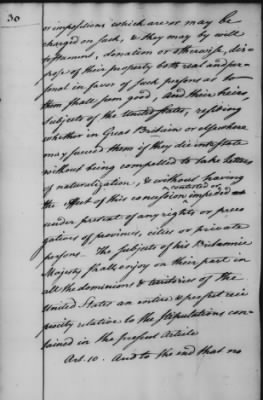 30
or impositions which are or may be
charged on such, & they may by will
testament, donation or otherwise, dis-
pose of their property both real and per-
sonal in favor of such persons as to
them shall seem good, and their heirs,
subjects of the United States, residing
whether in Great Britain or elsewhere
may succeed them if they die intestate
without being compelled to take letters
of naturalization, & without having
contested or
the effect of this concession impeded
under pretext of any rights or prero
gations of provinces, cities or private
persons. The subjects of his Britannic
Majesty, shall enjoy on their part in
all the dominions & territories of the
United States an entire & perfect reci
procity relative to the stipulations con-
tained in the present Article
Art. 10. And to the end that no